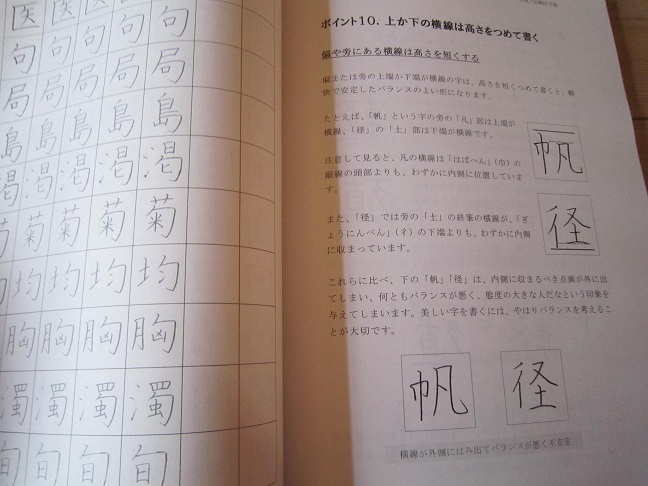 医 医 医
句 句 句 句
局 局 局 局
島 島 島 島
渇 渇 渇 渇
菊 菊 菊
均 均 均 均
胸 胸 胸 胸
濁 濁 濁 濁
旬 旬 旬
ポイント10. 上か下の横線は高さをつめて書く
偏や旁にある横線は高さを短くする
偏または旁の上端か下端が横線の字は、高さを短くつめて書くと、軽
快で安定したバランスのよい形になります。
たとえば、「帆」という字の旁の「凡」部は上端が
横線、「径」の「土」部は下端が横線です。
注意して見ると、凡の横線は「はばへん」(巾)の
縦線の頭部よりも、わずかに内側に位置していま
す。
また、「径」では旁の「土」の終筆の横線が、「ぎ
ょうにんべん」(彳)の下端よりも、わずかに内側
に収まっています。
帆
径
これらに比べ、下の「帆」「径」は、内側に収まるべき点画が外に出
てしまい、何ともバランスが悪く、態度の大きな人だなという印象を
与えてしまいます。美しい字を書くには、やはりバランスを考えるこ
とが大切です。
帆 径
横線が外側にはみ出てバランスが悪く不安定